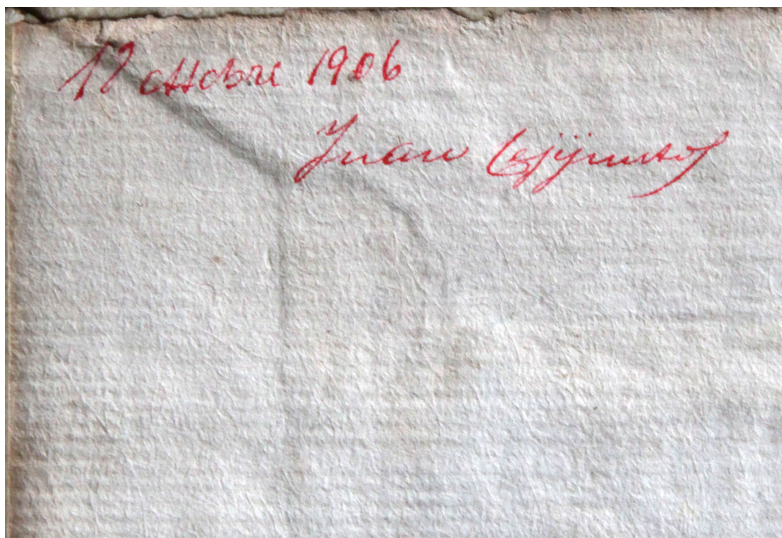 17 ottobre 1906
Juan